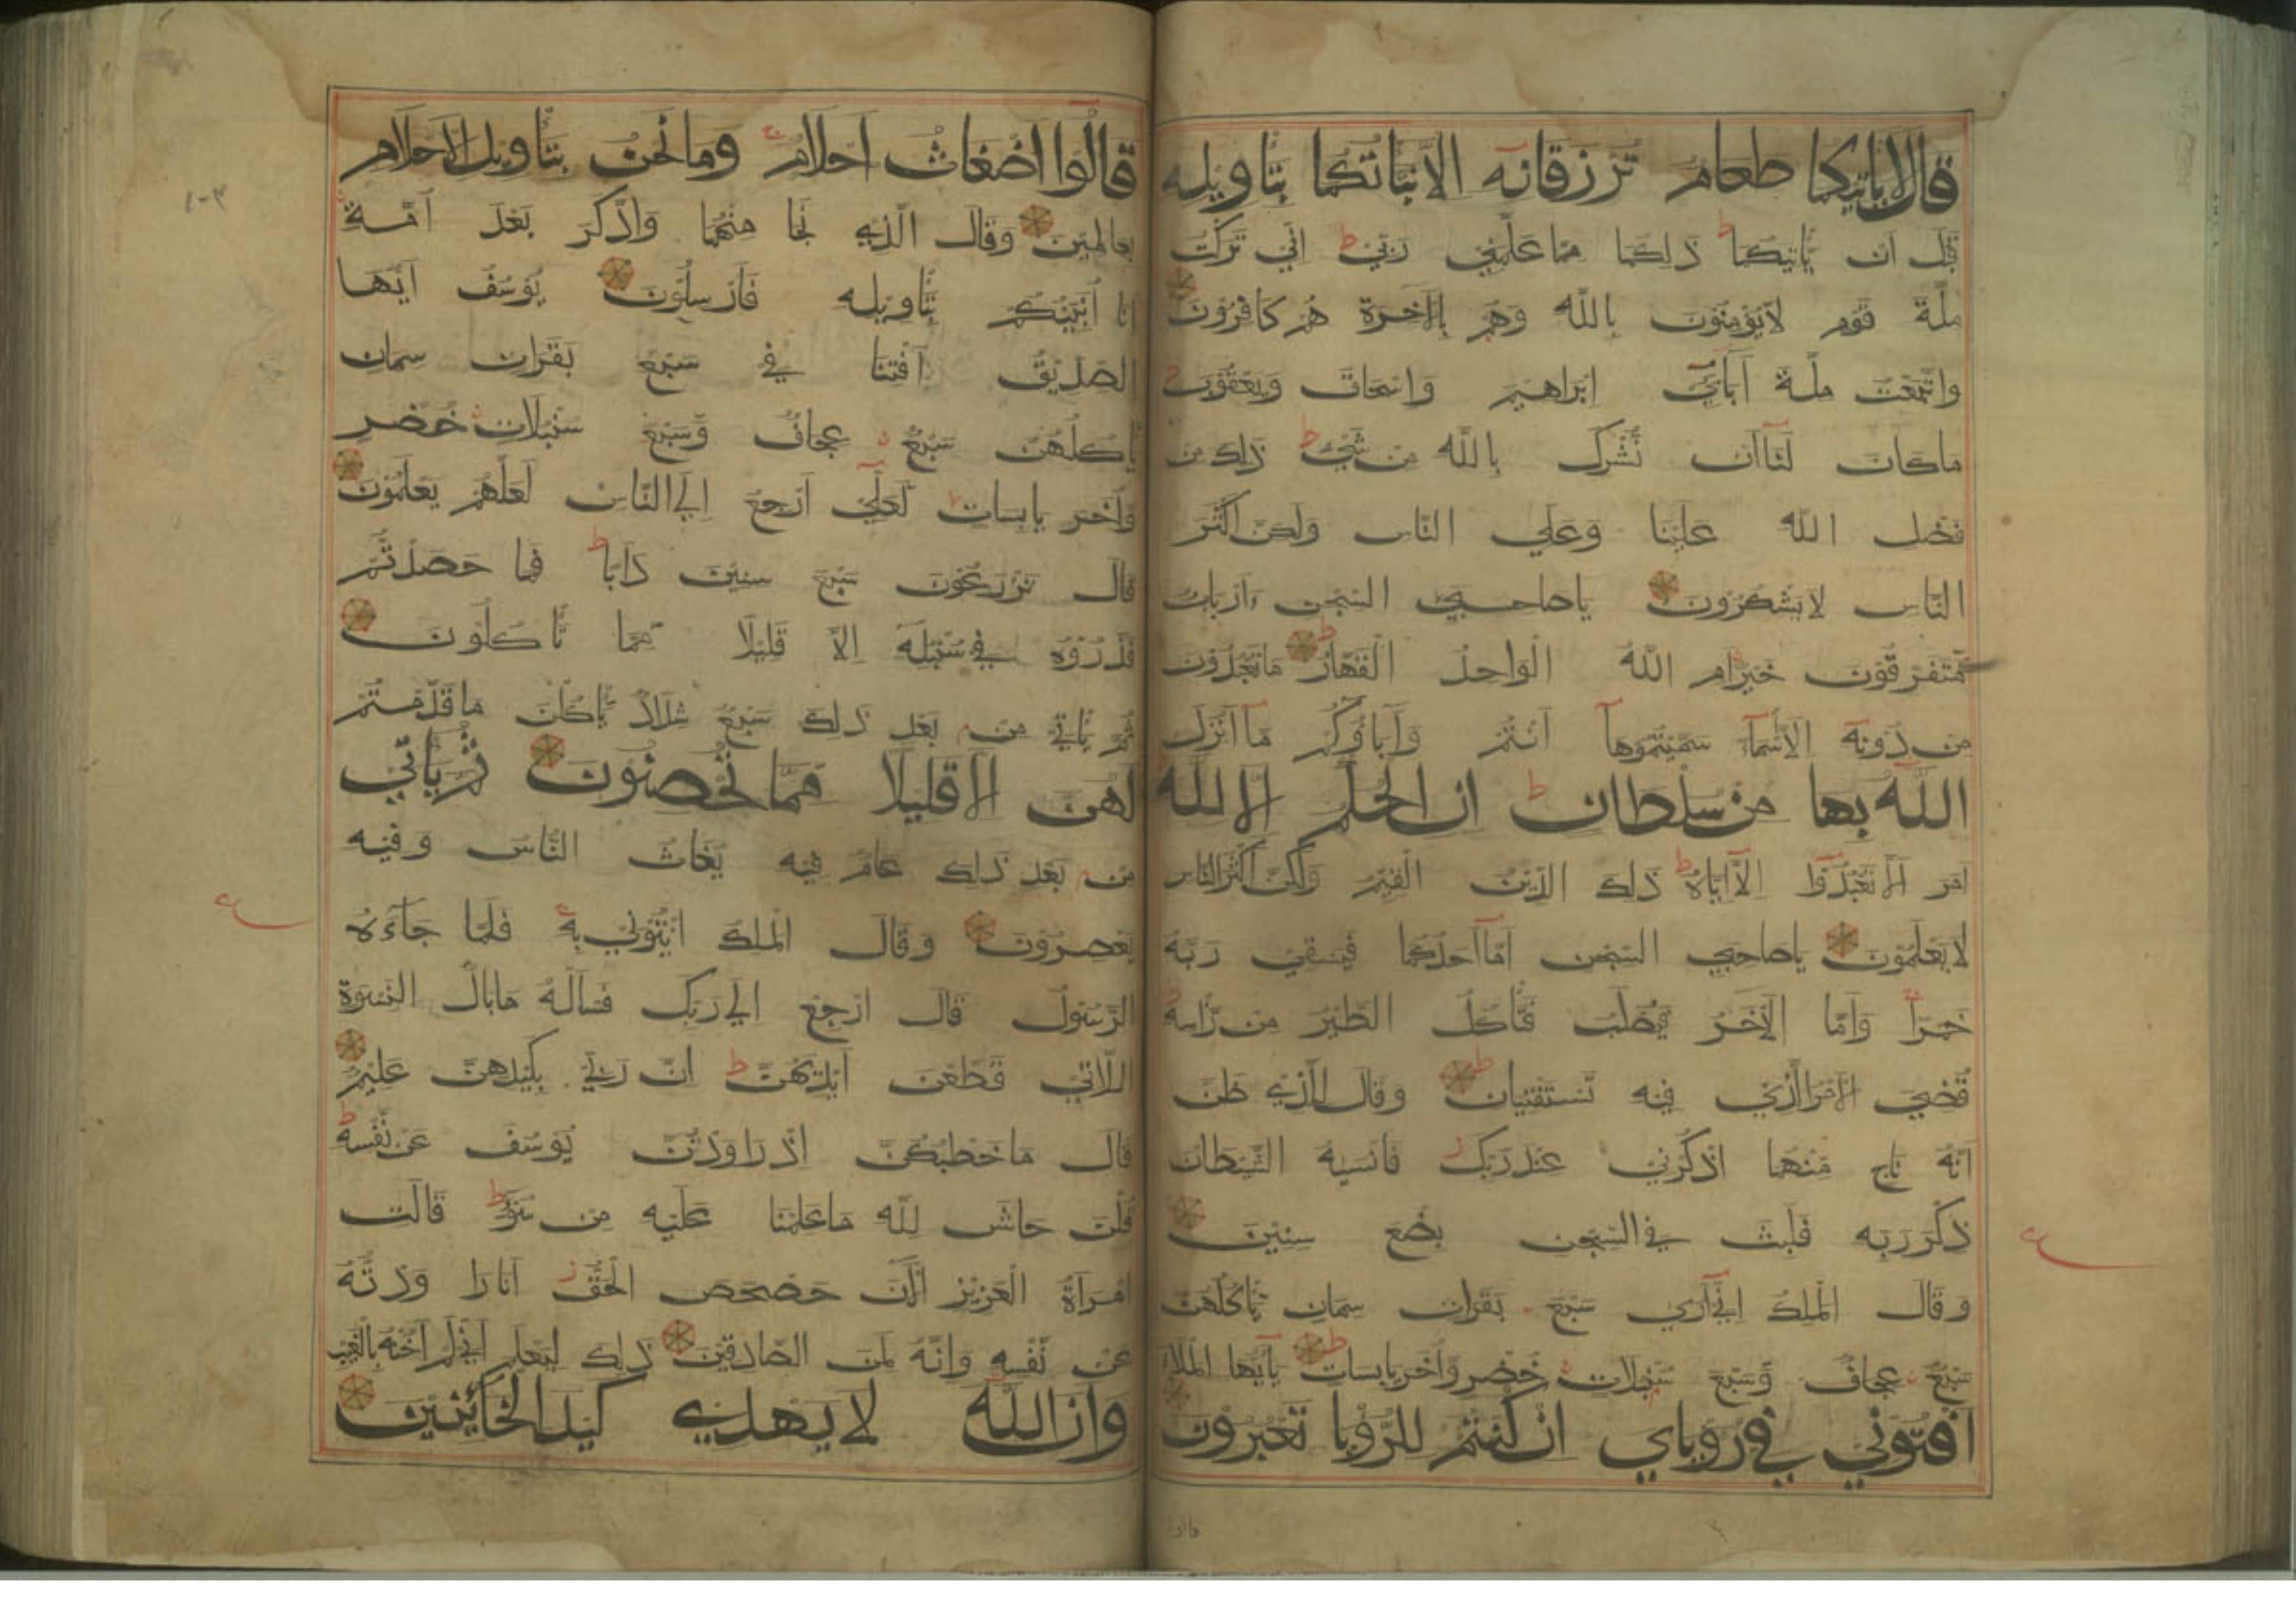 قال لا ياتيكما طعام ترزقانه الا نباتكما بتاويله
قبل ان ياتيكما ذلكما مما علمني ربي اني تركت
ملة قوم لا يؤمنون بالله وهم بالاخرة هم كافرون
واتبعت ملة آبائي ابراهيم واسحاق ويعقوب
ما كان لنا ان نشرك بالله من شيء ذلك من
فضل الله علينا وعلي الناس ولكن اكثر
الناس لا يشكرون ياصاحبي السجن ءارباب
متفرقون خير ام الله الواحد القهار ما تعبدون
من دونه الا اسماء سميتموها انتم وآباؤكم ما انزل
الله بها من سلطان ان الحكم الا لله
امر الا تعبدوا الا اياه ذلك الدين القيم ولكن اكثر الناس
لا يعلمون ياصاحبي السجن اما احدكما فيسقي ربه
خمرا واما الاخر فيصلب فتاكل الطير من راسه
قضي الامر الذي فيه تستفتيان وقال للذي ظن
انه ناج منهما اذكرني عند ربك فانسيه الشيطان
ذكر ربه فلبث في السجن بضع سنين
وقال الملك اني آري سبع بقرات سمان ياكلهن
سبع عجاف وسبع سنبلات خضر واخر يابسات يآايها الملا
افتوني في روياي ان كنتم للرويا تعبرون
قالوا اضغاث احلام وما نحن بتاويل الاحلام
بعالمين وقال الذي نجا منهما وادكر بعد امة
انا انبئكم بتاويله فارسلون يوسف ايها
الصديق افتنا في سبع بقرات سمان
ياكلهن سبع عجاف وسبع سنبلات خضر
واخر يابسات لعلي ارجع الي الناس لعلهم يعلمون
قال تزرعون سبع سنين دابا فما حصدتم
فذروه في سنبله الا قليلا مما تاكلون
ثم ياتي من بعد ذلك سبع شداد ياكلن ما قدمتم
لهن الا قليلا مما تحصنون ثم ياتي
من بعد ذلك عام فيه يغاث الناس وفيه
يعصرون وقال الملك ائتوني به فلما جاءه
الرسول قال ارجع الي ربك فساله ما بال النسوة
اللاتي قطعن ايديهن ان ربي بكيدهن عليم
قال ما خطبكن اذ راودتن يوسف عن نفسه
قلن حاش لله ما علمنا عليه من سوء قالت
امراة العزيز الآن حصحص الحق انا راودته
عن نفسه وانه لمن الصادقين ذلك ليعلم اني لم اخنه بالغيب
وان الله لا يهدي كيد الخائنين